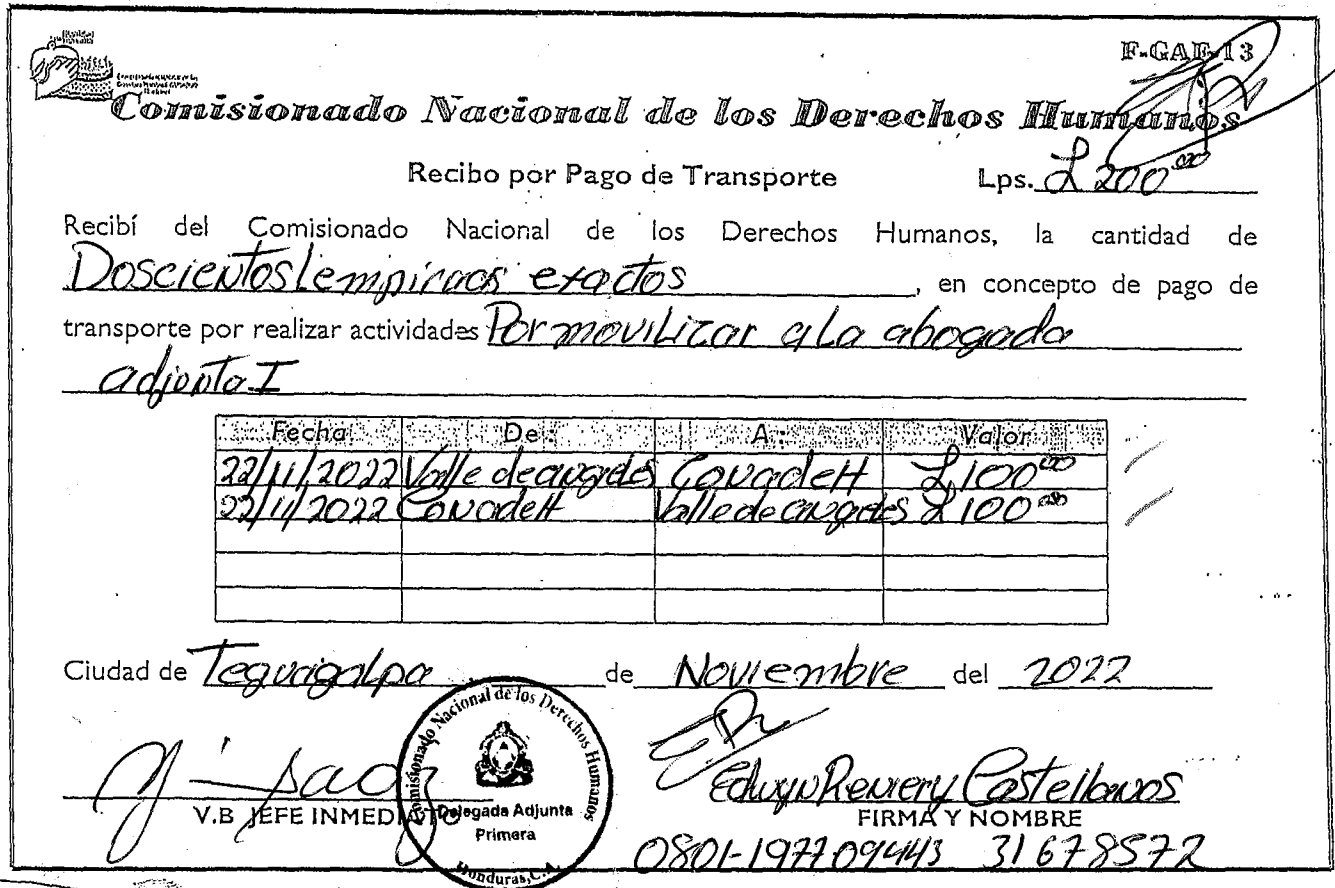 F-GAE-13
Comisionado Nacional de los Derechos Humanos
Recibo por Pago de Transporte Lps. L 200.00
Recibí del Comisionado Nacional de los Derechos Humanos, la cantidad de
Doscientos Lempiras exactos, en concepto de pago de
transporte por realizar actividades Por movilizar a la abogada
adjunta I
Fecha De: A: Valor
22/11/2022 Valle de angeles Conadeh L 100.00
22/11/2022 Conadeh Valle de angeles L 100.00
Ciudad de Tegucigalpa de Noviembre del 2022
Comisionado Nacional de los Derechos Humanos
Delegada Adjunta
Primera
Honduras, C.A.
V.B JEFE INMEDIATO
Edwyn Reniery Castellanos
FIRMA Y NOMBRE
0801-197709443 31678572